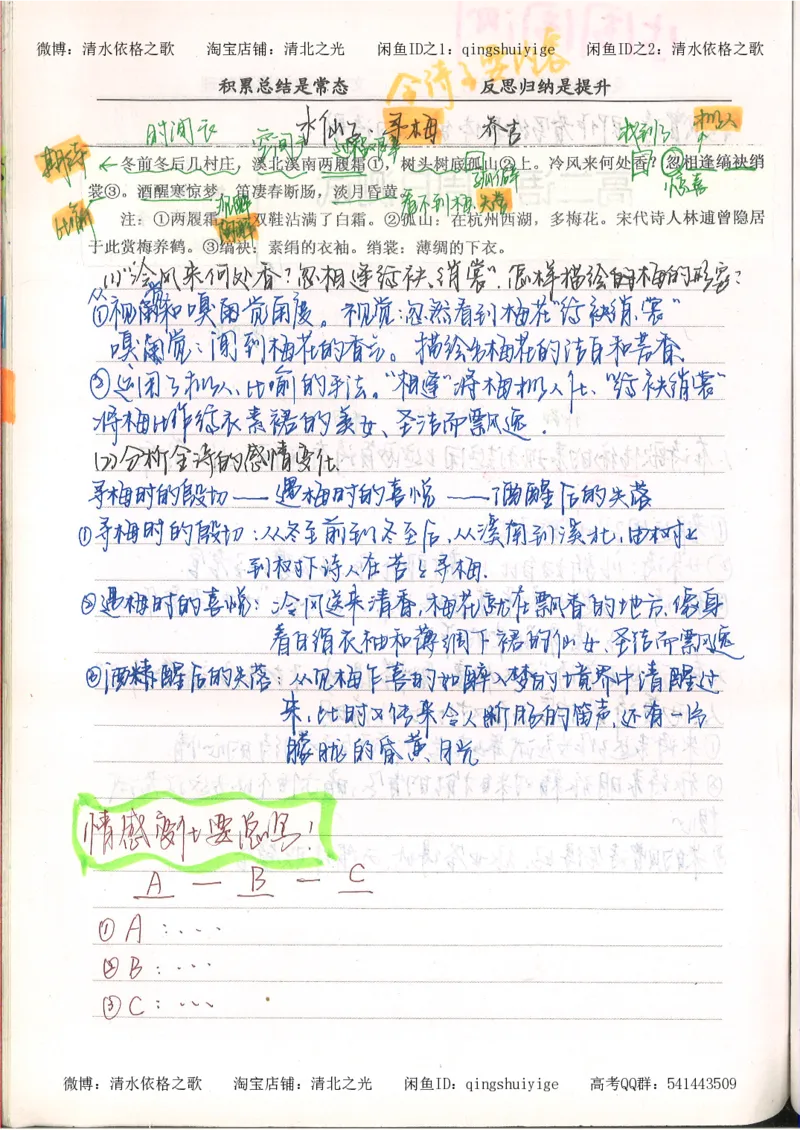 微博：清水依格之歌 淘宝店铺：清北之光 闲鱼ID之1：qingshuiyige 闲鱼ID之2：清水依格之歌
全诗主要内容
积累总结是常态 反思归纳是提升
水仙子·寻梅 乔吉
时间长
空间大
找到了
拟人
期待
冬前冬后几村庄，溪北溪南两履霜①，树头树底孤山②上。冷风来何处香？忽相逢缟袂绡
裳③。酒醒寒惊梦，笛凄春断肠，淡月昏黄。
惊喜
比喻
看不到梅
失落
注：①两履霜：一双鞋沾满了白霜。②孤山：在杭州西湖，多梅花。宋代诗人林逋曾隐居
于此赏梅养鹤。③缟袂：素绢的衣袖。绡裳：薄绸的下衣。
(1)"冷风来何处香？忽相逢缟袂绡裳"，怎样描绘的梅的形容？
①从视觉和嗅觉角度。视觉：忽然看到梅花"缟袂绡裳"
嗅觉：闻到梅花的香气。描绘出梅花的洁白和芳香
②运用了拟人、比喻的手法。"相逢"将梅拟人化、"缟袂绡裳"
将梅比作缟衣素裙的美女、圣洁而飘逸．
(2)分析全诗的感情变化
寻梅时的殷切——遇梅时的喜悦——酒醒后的失落
①寻梅时的殷切：从冬至前到冬至后，从溪南到溪北，由树上
到树下诗人在苦苦寻梅．
②遇梅时的喜悦：冷风送来清香，梅花就在飘香的地方．像身
着白绢衣袖和薄绸下裙的仙女、圣洁而飘逸
③酒醒后的失落：从见梅乍喜的如醉入梦的境界中清醒过
来，此时又传来令人断肠的笛声，还有一片
朦胧的昏黄月光
情感变化要总写！
A — B — C
①A：...
②B：...
③C：...
微博：清水依格之歌 淘宝店铺：清北之光 闲鱼ID：qingshuiyige 高考QQ群：541443509